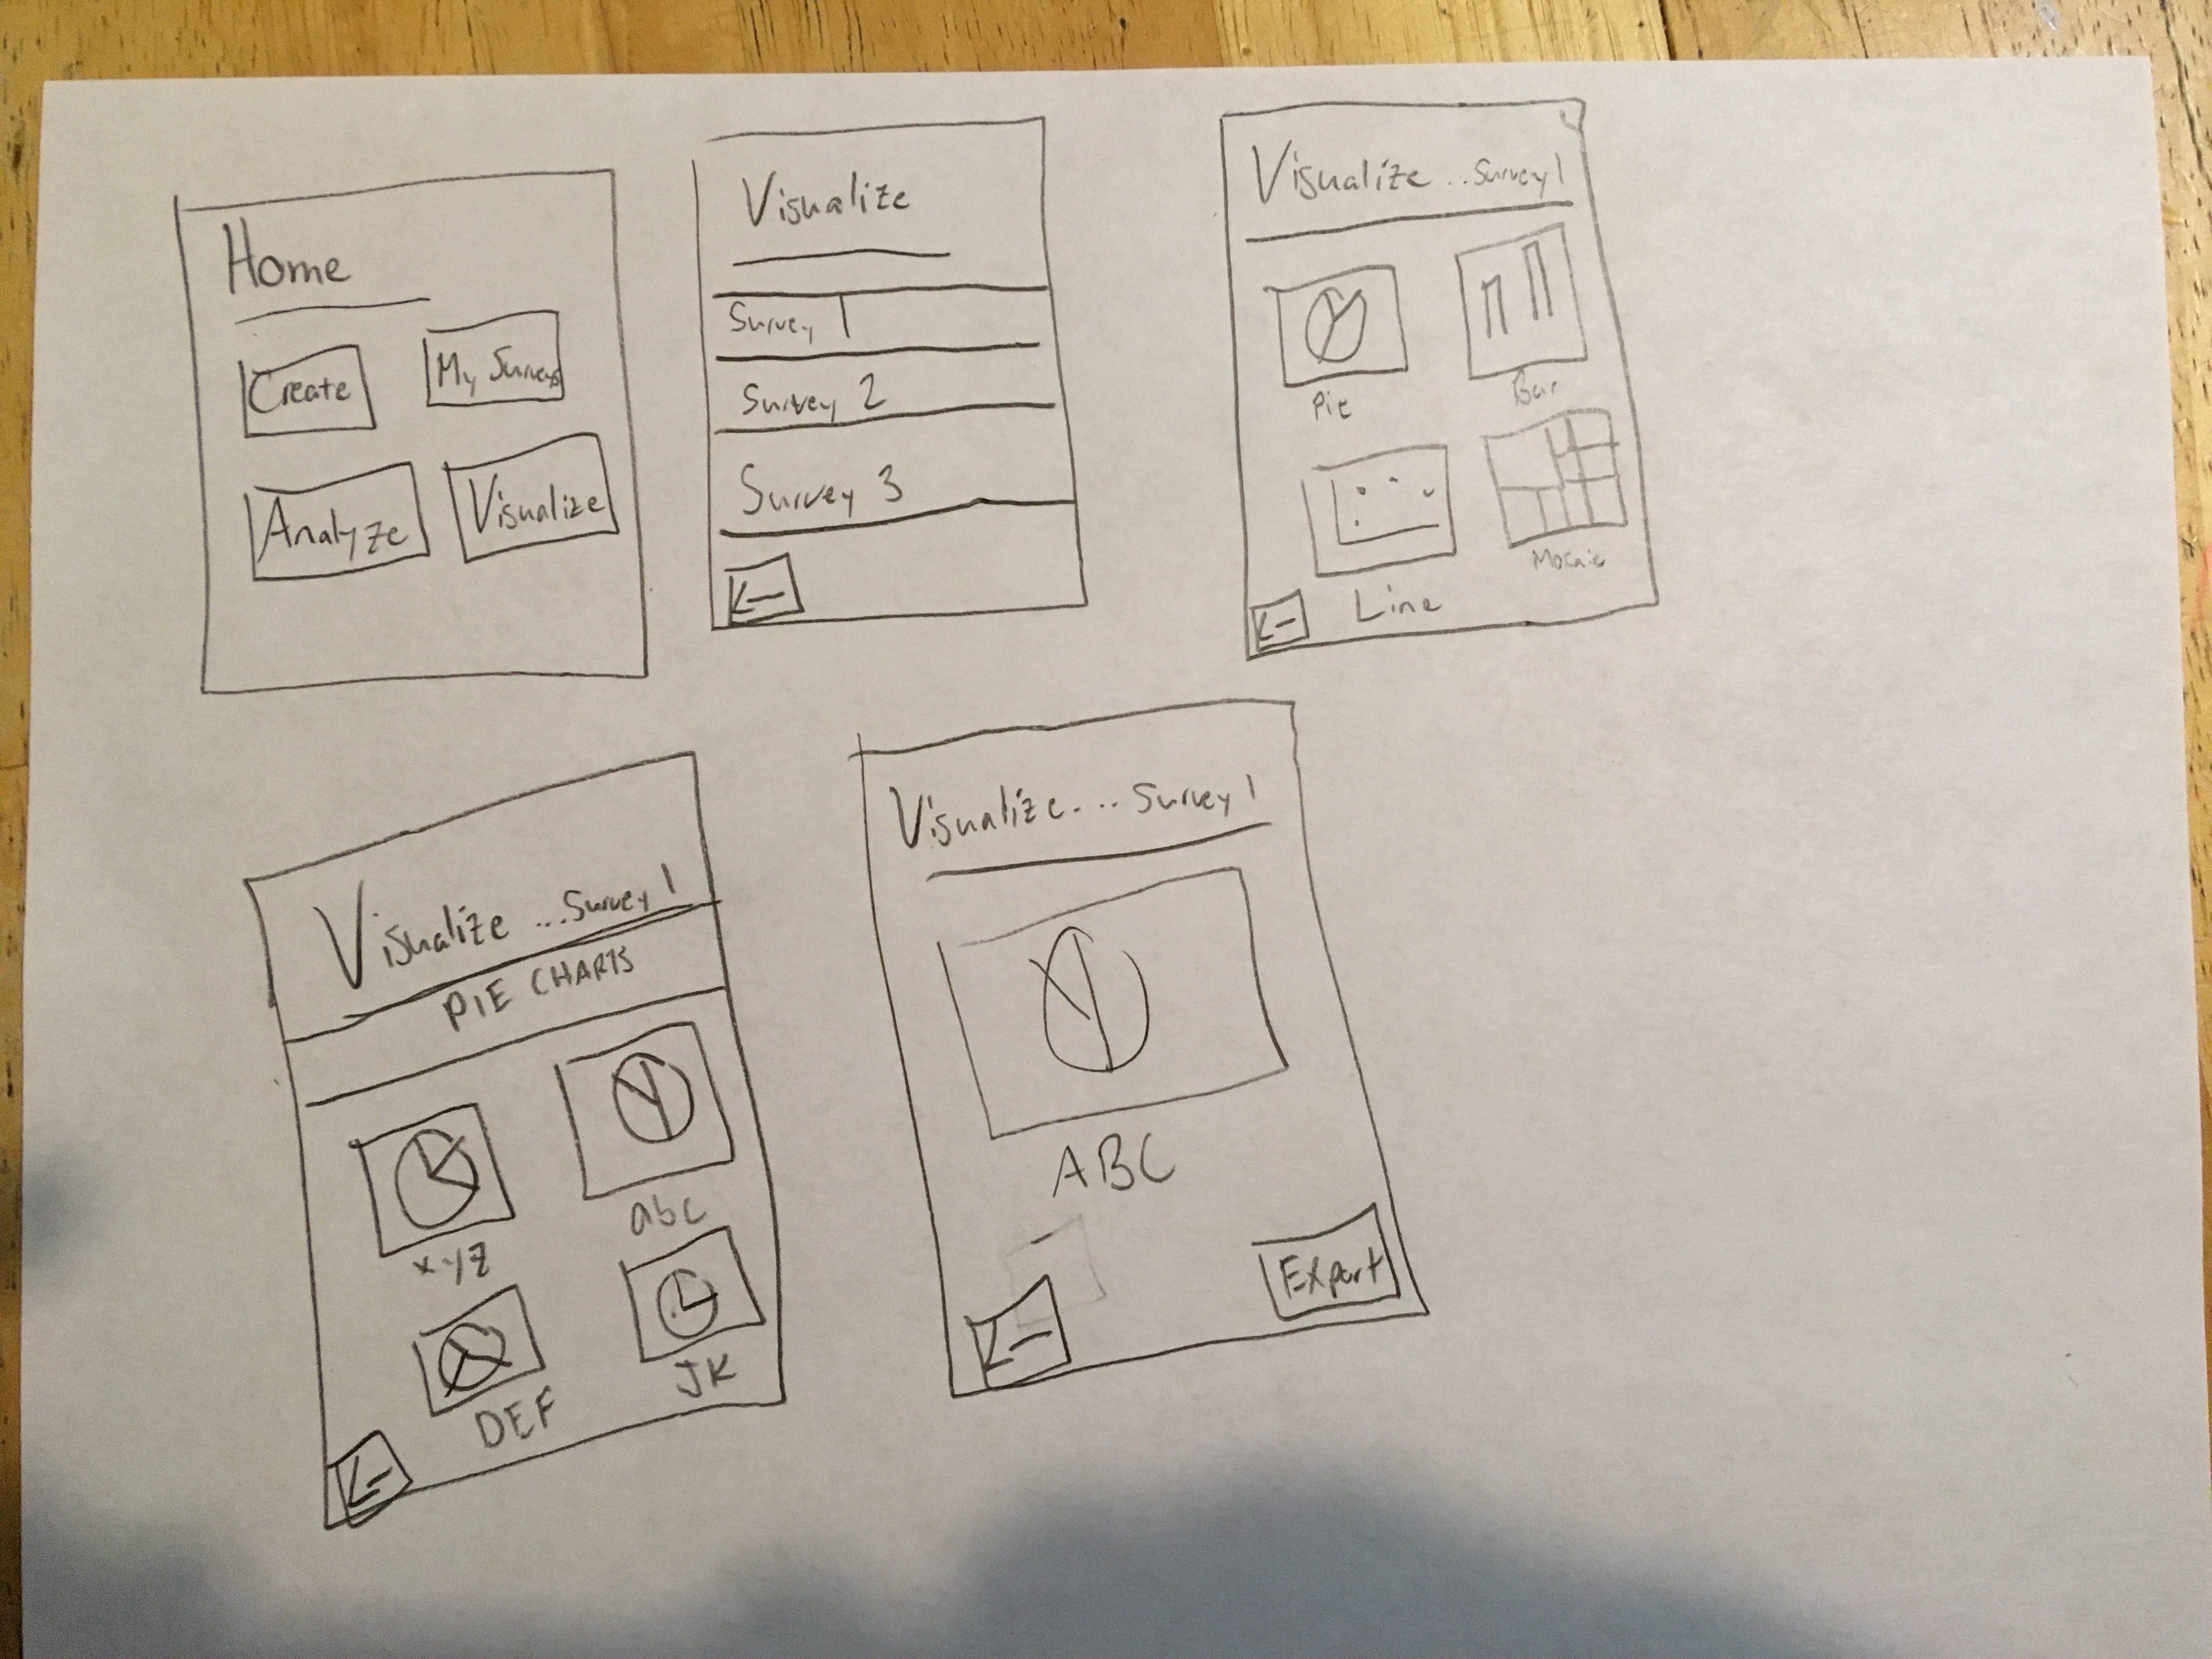 Home
Create
My Surveys
Analyze
Visualize
Visualize
Survey 1
Survey 2
Survey 3
Visualize ..Survey 1
Pie
Bar
Line
Mosaic
Visualize ...Survey 1
PIE CHARTS
XYZ
abc
DEF
JK
Visualize.... Survey 1
ABC
Export